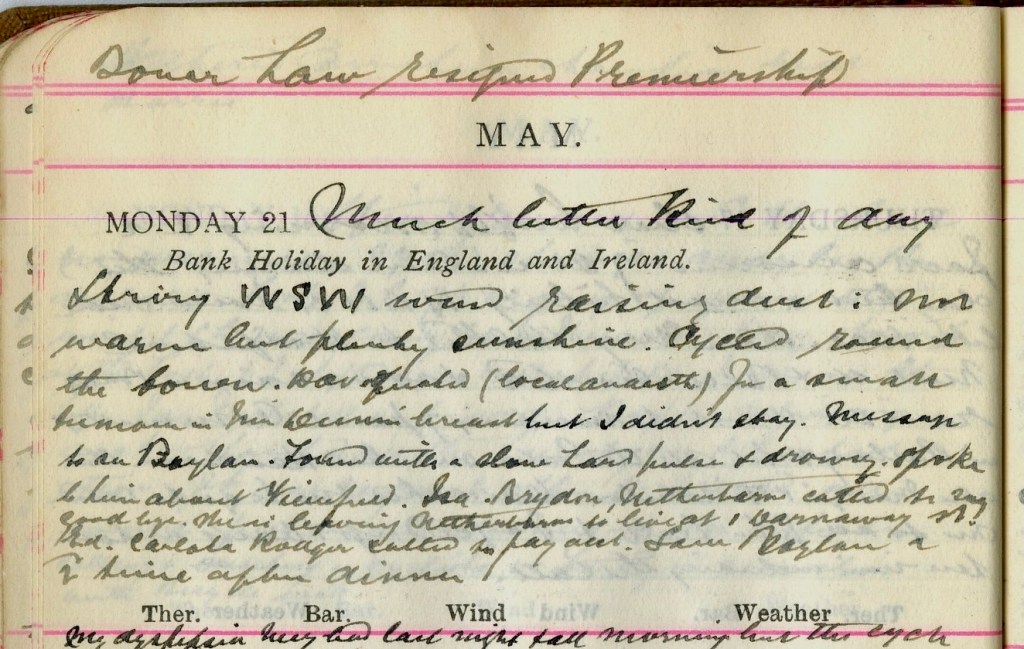 Bonar Law resigned Premiership
MAY.
MONDAY 21 Much better kind of day
Bank Holiday in England and Ireland.
Strong WSW wind raising dust: not
warm but plenty sunshine. Cycled round
the . Dav operated (local anaesth) for a small
tumour in Mrs breast but I didn't stay. Message
to see Boylan. Found with a slow hard pulse & drowsy. Spoke
to him about Viewfield. Isa Brydon, Netherbarns called to say
good bye. She is leaving Netherbarns to live at 1 Darnaway St.
Ed. Carlota Rodger called to pay acct. Saw Boylan a
2 time after dinner
Ther. Bar. Wind Weather
My dyspepsia very bad last night & all morning but the cycle